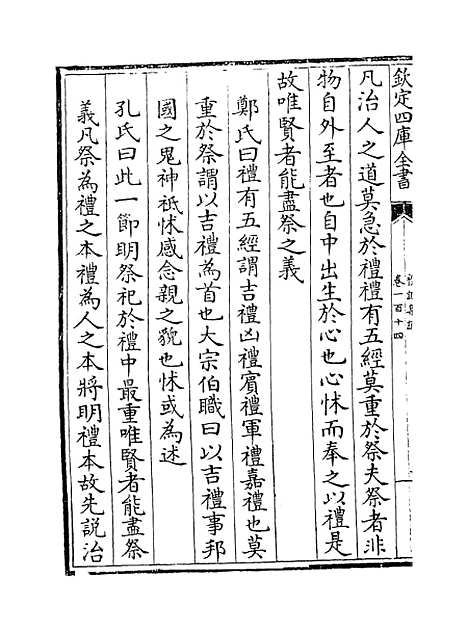 欽定四庫全書
卷一百十四
凡治人之道莫急於禮禮有五經莫重於祭夫祭者非
物自外至者也自中出生於心也心怵而奉之以禮是
故唯賢者能盡祭之義
鄭氏曰禮有五經謂吉禮凶禮賓禮軍禮嘉禮也莫
重於祭謂以吉禮為首也大宗伯職曰以吉禮事邦
國之鬼神祗怵感念親之貌也怵或為述
孔氏曰此一節明祭祀於禮中最重唯賢者能盡祭
義凡祭為禮之本禮為人之本將明禮本故先説治